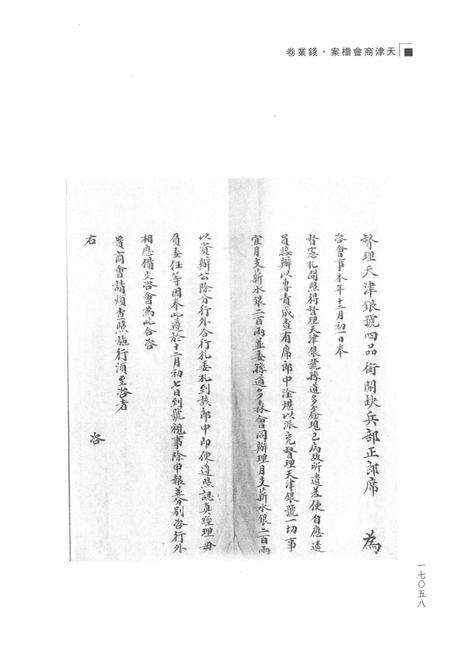 天津商會檔案·錢業卷
督理天津銀號四品銜開缺兵部正郎席 為
咨會事本年十二月初一日奉
督憲札開照得督理天津銀號孫道多鑫現已病故所遺差使自應遴
員接辦以專責成查有席郎中淦堪以派充督理天津銀號一切事
宜月支薪水銀二百兩並委孫道多森會同辦理月支薪水銀二百兩
以資辦公除分行外合行札委札到該郎中即便遵照認真經理毋
負委任等因奉此遵於十二月初七日到號視事除申報並分別咨行外
相應備文咨會為此合咨
貴商會請煩查照施行須至咨者
右 咨
一七〇五八